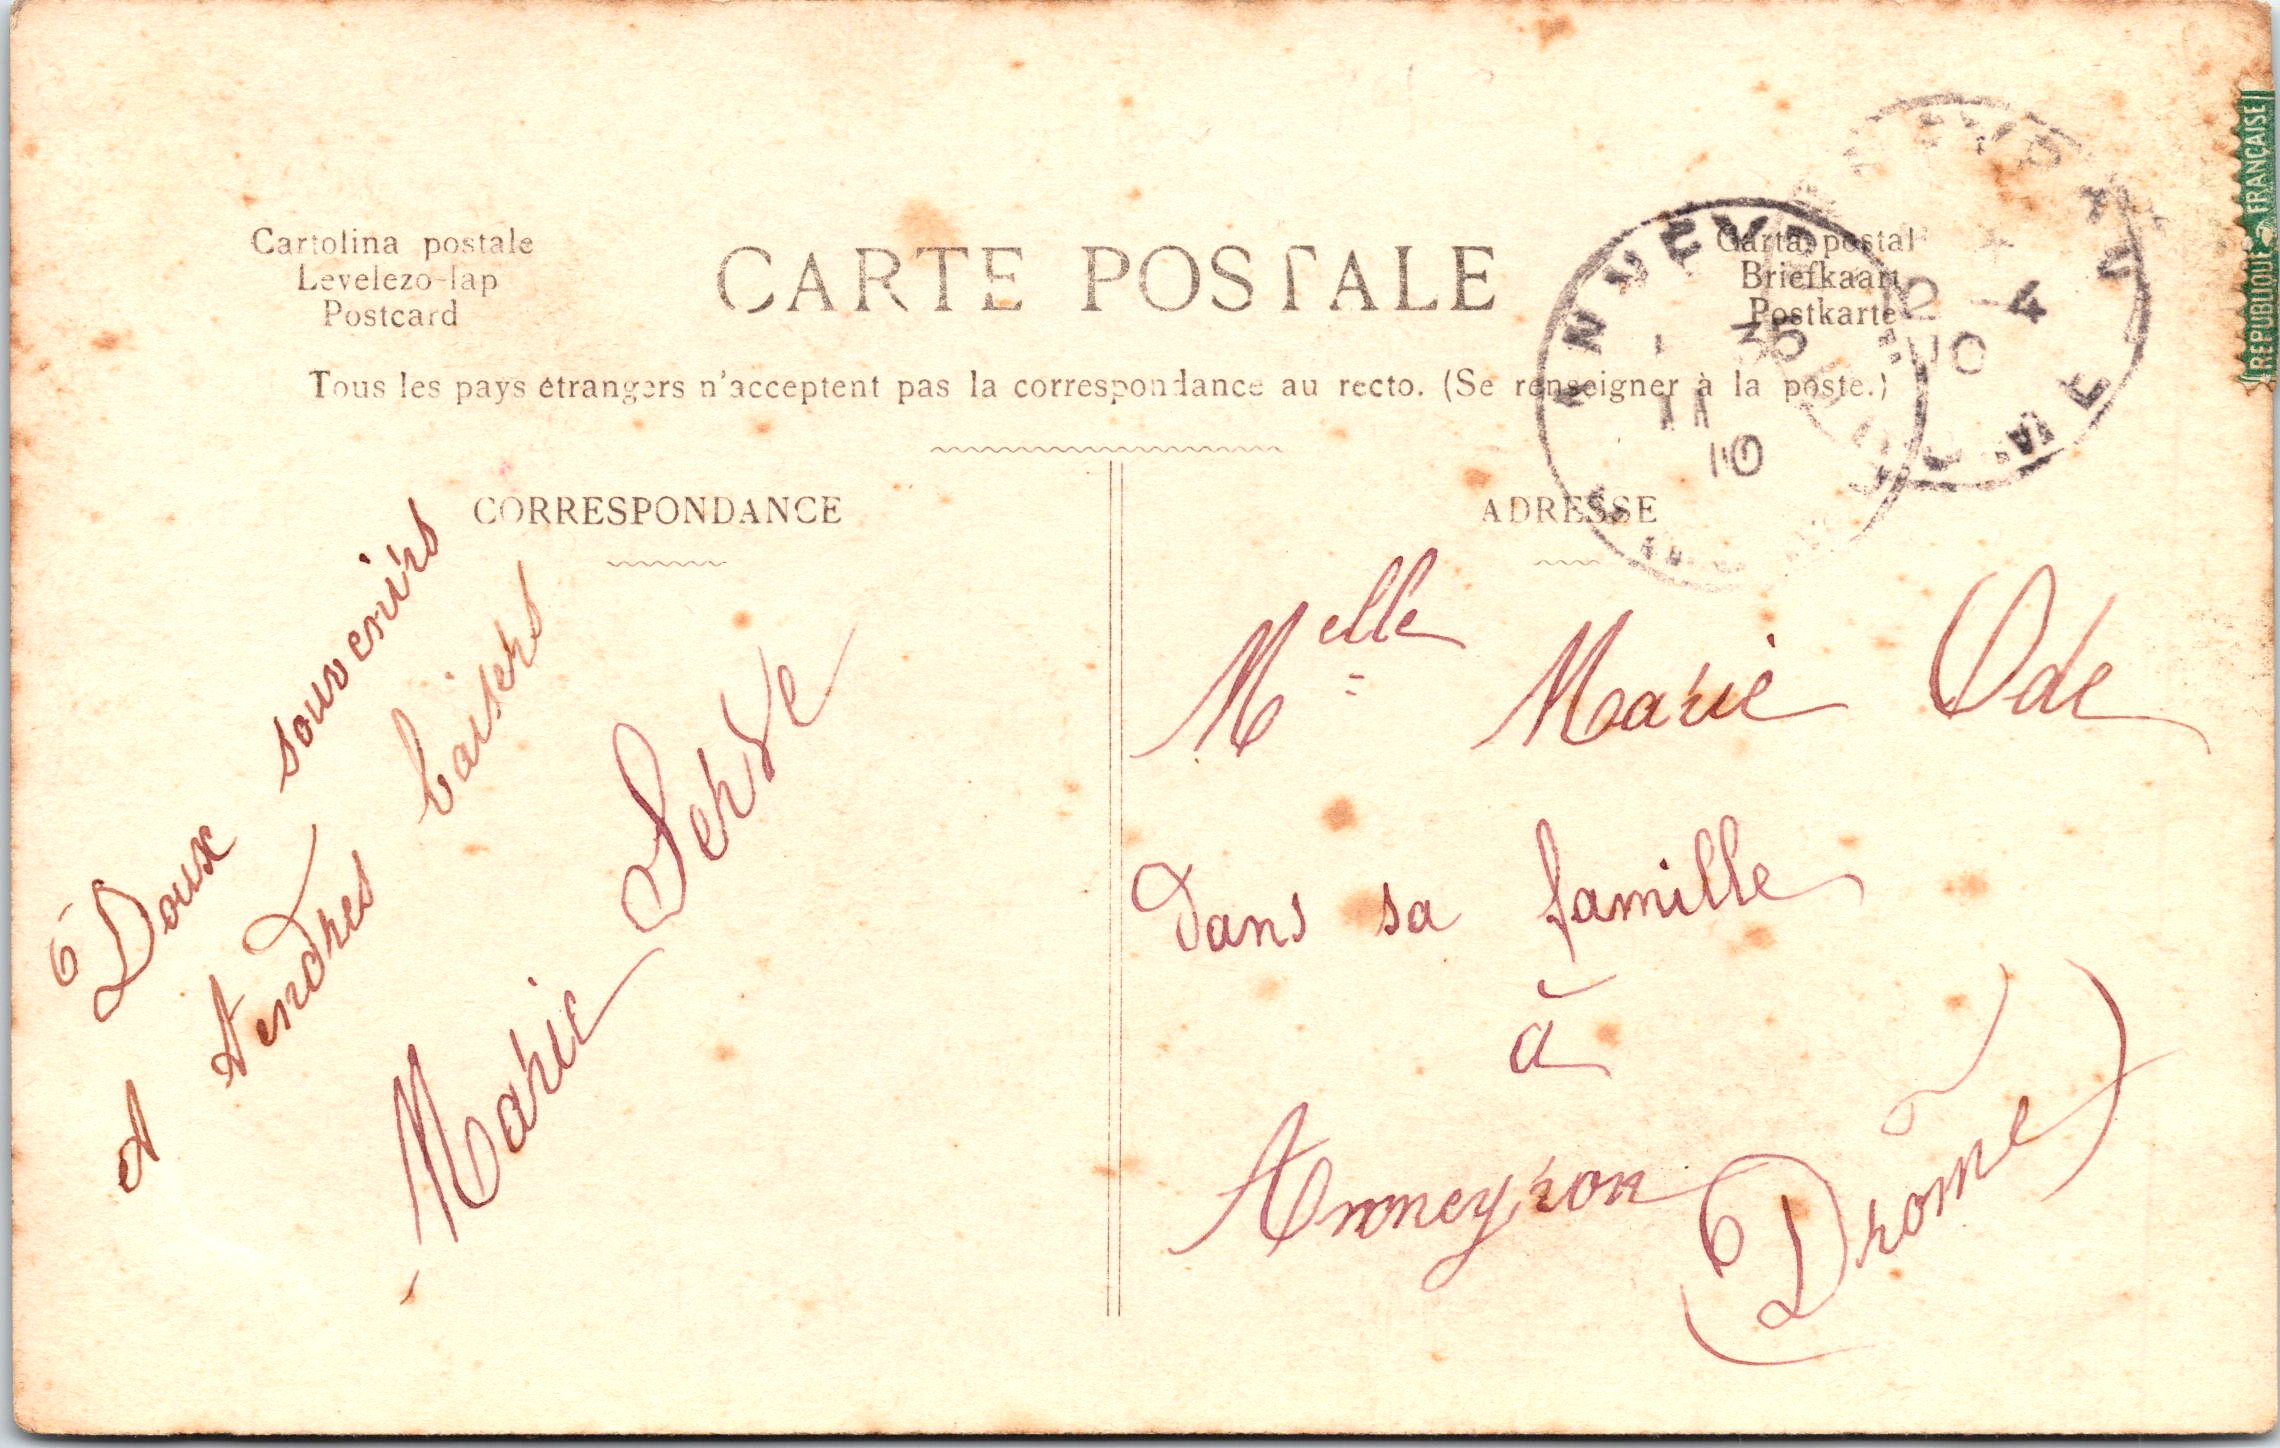 Cartolina postale
Levelezo-lap
Postcard
CARTE POSTALE
Carta postal
Briefkaart
Postkarte
Tous les pays étrangers n'acceptent pas la correspondance au recto. (Se renseigner à la poste.)
CORRESPONDANCE
Doux souvenirs
et tendres baisers
Marie Serve
ADRESSE
Melle Marie Ode
Dans sa famille
à
Anneyron
(Drôme)
35
11
10
2 - 4
10
REPUBLIQUE FRANÇAISE